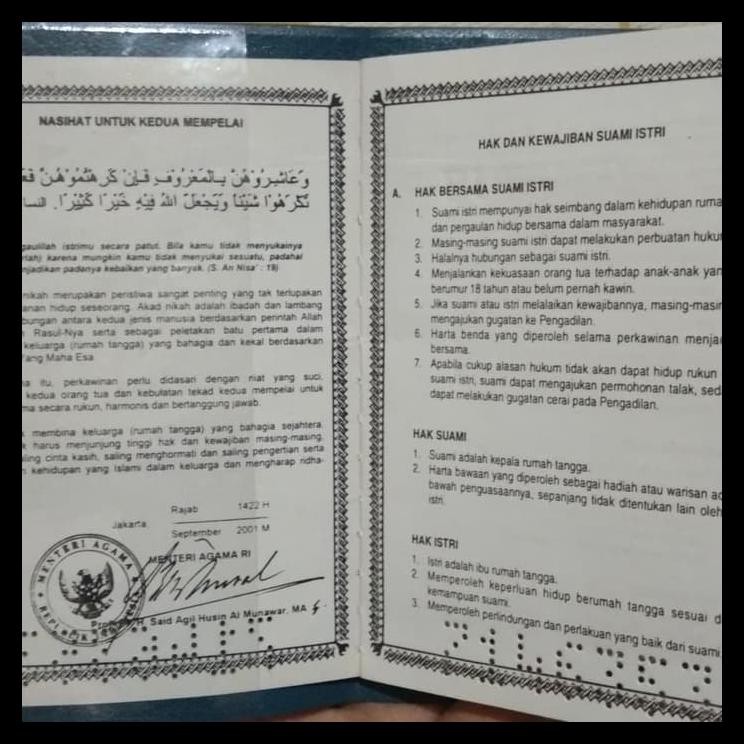 NASIHAT UNTUK KEDUA MEMPELAI
وَعَاشِرُوهُنَّ بِالْمَعْرُوفِ فَإِنْ كَرِهْتُمُوهُنَّ
تَكْرَهُوا شَيْئًا وَيَجْعَلَ اللهُ فِيْهِ خَيْرًا كَثِيْرًا.
istrimu secara patut. Bila kamu tidak menyukainya
karena mungkin kamu tidak menyukai sesuatu, padahal
padanya kebaikan yang banyak. (S. An Nisa' : 19)
nikah merupakan peristiwa sangat penting yang tak terlupakan
hidup seseorang. Akad nikah adalah ibadah dan lambang
antara kedua jenis manusia berdasarkan perintah Allah
Rasul-Nya serta sebagai peletakan batu pertama dalam
keluarga (rumah tangga) yang bahagia dan kekal berdasarkan
Yang Maha Esa
itu, perkawinan perlu didasari dengan niat yang suci,
kedua orang tua dan kebulatan tekad kedua mempelai untuk
secara rukun, harmonis dan bertanggung jawab.
membina keluarga (rumah tangga) yang bahagia sejahtera,
harus menjunjung tinggi hak dan kewajiban masing-masing,
cinta kasih, saling menghormati dan saling pengertian serta
kehidupan yang Islami dalam keluarga dan mengharap ridha-
Rajab 1422 H
Jakarta,
September 2001 M
MENTERI AGAMA RI
MENTERI AGAMA
H. Said Agil Husin Al Munawar, MA
HAK DAN KEWAJIBAN SUAMI ISTRI
A. HAK BERSAMA SUAMI ISTRI
1. Suami istri mempunyai hak seimbang dalam kehidupan
dan pergaulan hidup bersama dalam masyarakat.
2. Masing-masing suami istri dapat melakukan perbuatan
3. Halalnya hubungan sebagai suami istri.
4. Menjalankan kekuasaan orang tua terhadap anak-anak
berumur 18 tahun atau belum pernah kawin.
5. Jika suami atau istri melalaikan kewajibannya,
mengajukan gugatan ke Pengadilan.
6. Harta benda yang diperoleh selama perkawinan
bersama.
7. Apabila cukup alasan hukum tidak akan dapat hidup rukun
suami istri, suami dapat mengajukan permohonan talak,
dapat melakukan gugatan cerai pada Pengadilan.
HAK SUAMI
1. Suami adalah kepala rumah tangga.
2. Harta bawaan yang diperoleh sebagai hadiah atau warisan
bawah penguasaannya, sepanjang tidak ditentukan lain oleh
istri.
HAK ISTRI
1. Istri adalah ibu rumah tangga.
2. Memperoleh keperluan hidup berumah tangga sesuai
kemampuan suami.
3. Memperoleh perlindungan dan perlakuan yang baik dari suami